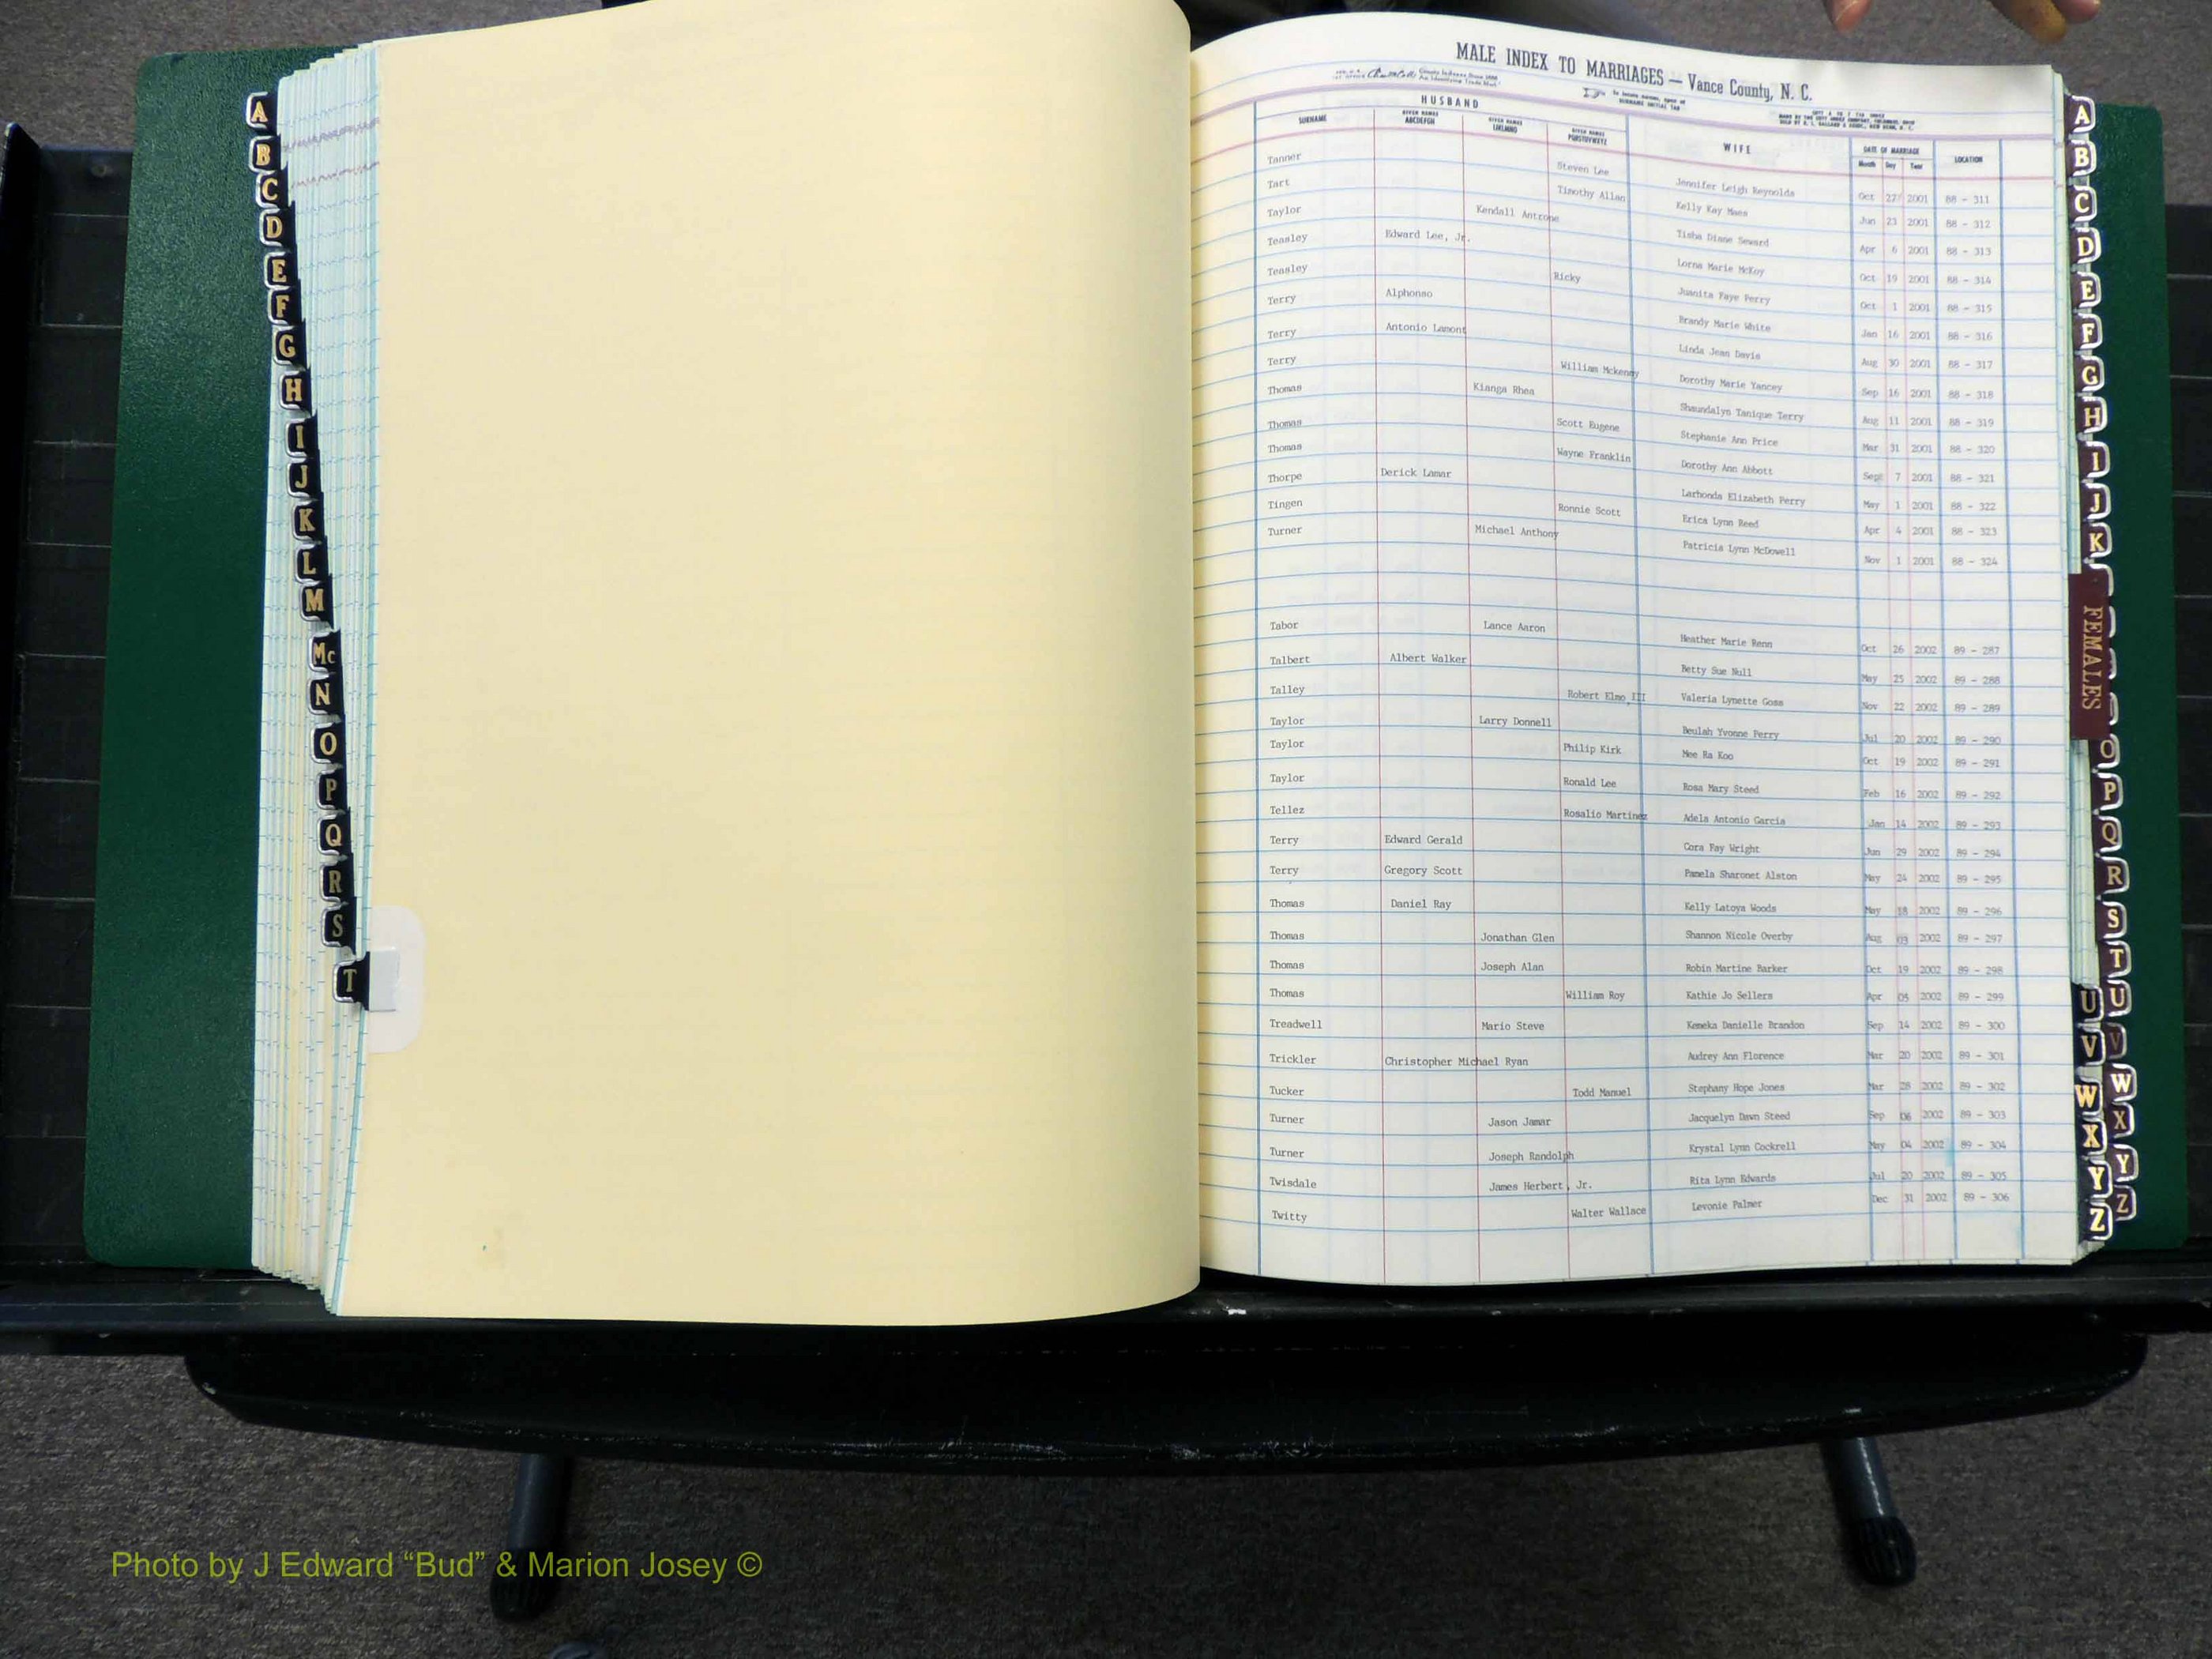 MALE INDEX TO MARRIAGES — Vance County, N. C.
County Indexes Since 1888
An Identifying Trade Mark
To locate names, open at
SURNAME INITIAL TAB
HUSBAND
SURNAME GIVEN NAMES ABCDEFGH GIVEN NAMES IJKLMNO GIVEN NAMES PQRSTUVWXYZ WIFE DATE OF MARRIAGE Month Day Year LOCATION
Tanner Steven Lee Jennifer Leigh Reynolds Oct 27 2001 88 - 311
Tart Timothy Allan Kelly Kay Maes Jun 23 2001 88 - 312
Taylor Kendall Antrone Tisha Diane Seward Apr 6 2001 88 - 313
Teasley Edward Lee, Jr. Lorna Marie McKoy Oct 19 2001 88 - 314
Teasley Ricky Juanita Faye Perry Oct 1 2001 88 - 315
Terry Alphonso Brandy Marie White Jan 16 2001 88 - 316
Terry Antonio Lamont Linda Jean Davis Aug 30 2001 88 - 317
Terry William Mckenny Dorothy Marie Yancey Sep 16 2001 88 - 318
Thomas Kianga Rhea Shaundalyn Tanique Terry Aug 11 2001 88 - 319
Thomas Scott Eugene Stephanie Ann Price Mar 31 2001 88 - 320
Thomas Wayne Franklin Dorothy Ann Abbott Sept 7 2001 88 - 321
Thorpe Derick Lamar Larhonda Elizabeth Perry May 1 2001 88 - 322
Tingen Ronnie Scott Erica Lynn Reed Apr 4 2001 88 - 323
Turner Michael Anthony Patricia Lynn McDowell Nov 1 2001 88 - 324
Tabor Lance Aaron Heather Marie Renn Oct 26 2002 89 - 287
Talbert Albert Walker Betty Sue Null May 25 2002 89 - 288
Talley Robert Elmo, III Valeria Lynette Goss Nov 22 2002 89 - 289
Taylor Larry Donnell Beulah Yvonne Perry Jul 20 2002 89 - 290
Taylor Philip Kirk Mee Ra Koo Oct 19 2002 89 - 291
Taylor Ronald Lee Rosa Mary Steed Feb 16 2002 89 - 292
Tellez Rosalio Martinez Adela Antonio Garcia Jan 14 2002 89 - 293
Terry Edward Gerald Cora Fay Wright Jun 29 2002 89 - 294
Terry Gregory Scott Pamela Sharonet Alston May 24 2002 89 - 295
Thomas Daniel Ray Kelly Latoya Woods May 18 2002 89 - 296
Thomas Jonathan Glen Shannon Nicole Overby Aug 03 2002 89 - 297
Thomas Joseph Alan Robin Martine Barker Oct 19 2002 89 - 298
Thomas William Roy Kathie Jo Sellers Apr 05 2002 89 - 299
Treadwell Mario Steve Kemeka Danielle Brandon Sep 14 2002 89 - 300
Trickler Christopher Michael Ryan Audrey Ann Florence Mar 20 2002 89 - 301
Tucker Todd Manuel Stephany Hope Jones Mar 28 2002 89 - 302
Turner Jason Jamar Jacquelyn Dawn Steed Sep 06 2002 89 - 303
Turner Joseph Randolph Krystal Lynn Cockrell May 04 2002 89 - 304
Twisdale James Herbert, Jr. Rita Lynn Edwards Jul 20 2002 89 - 305
Twitty Walter Wallace Levonie Palmer Dec 31 2002 89 - 306
A
B
C
D
E
F
G
H
I
J
K
L
M
Mc
N
O
P
Q
R
S
T
A
B
C
D
E
F
G
H
I
J
K
FEMALES
O
P
Q
R
S
T
U U
V V
W W
X X
Y Y
Z Z
Photo by J Edward “Bud” & Marion Josey ©